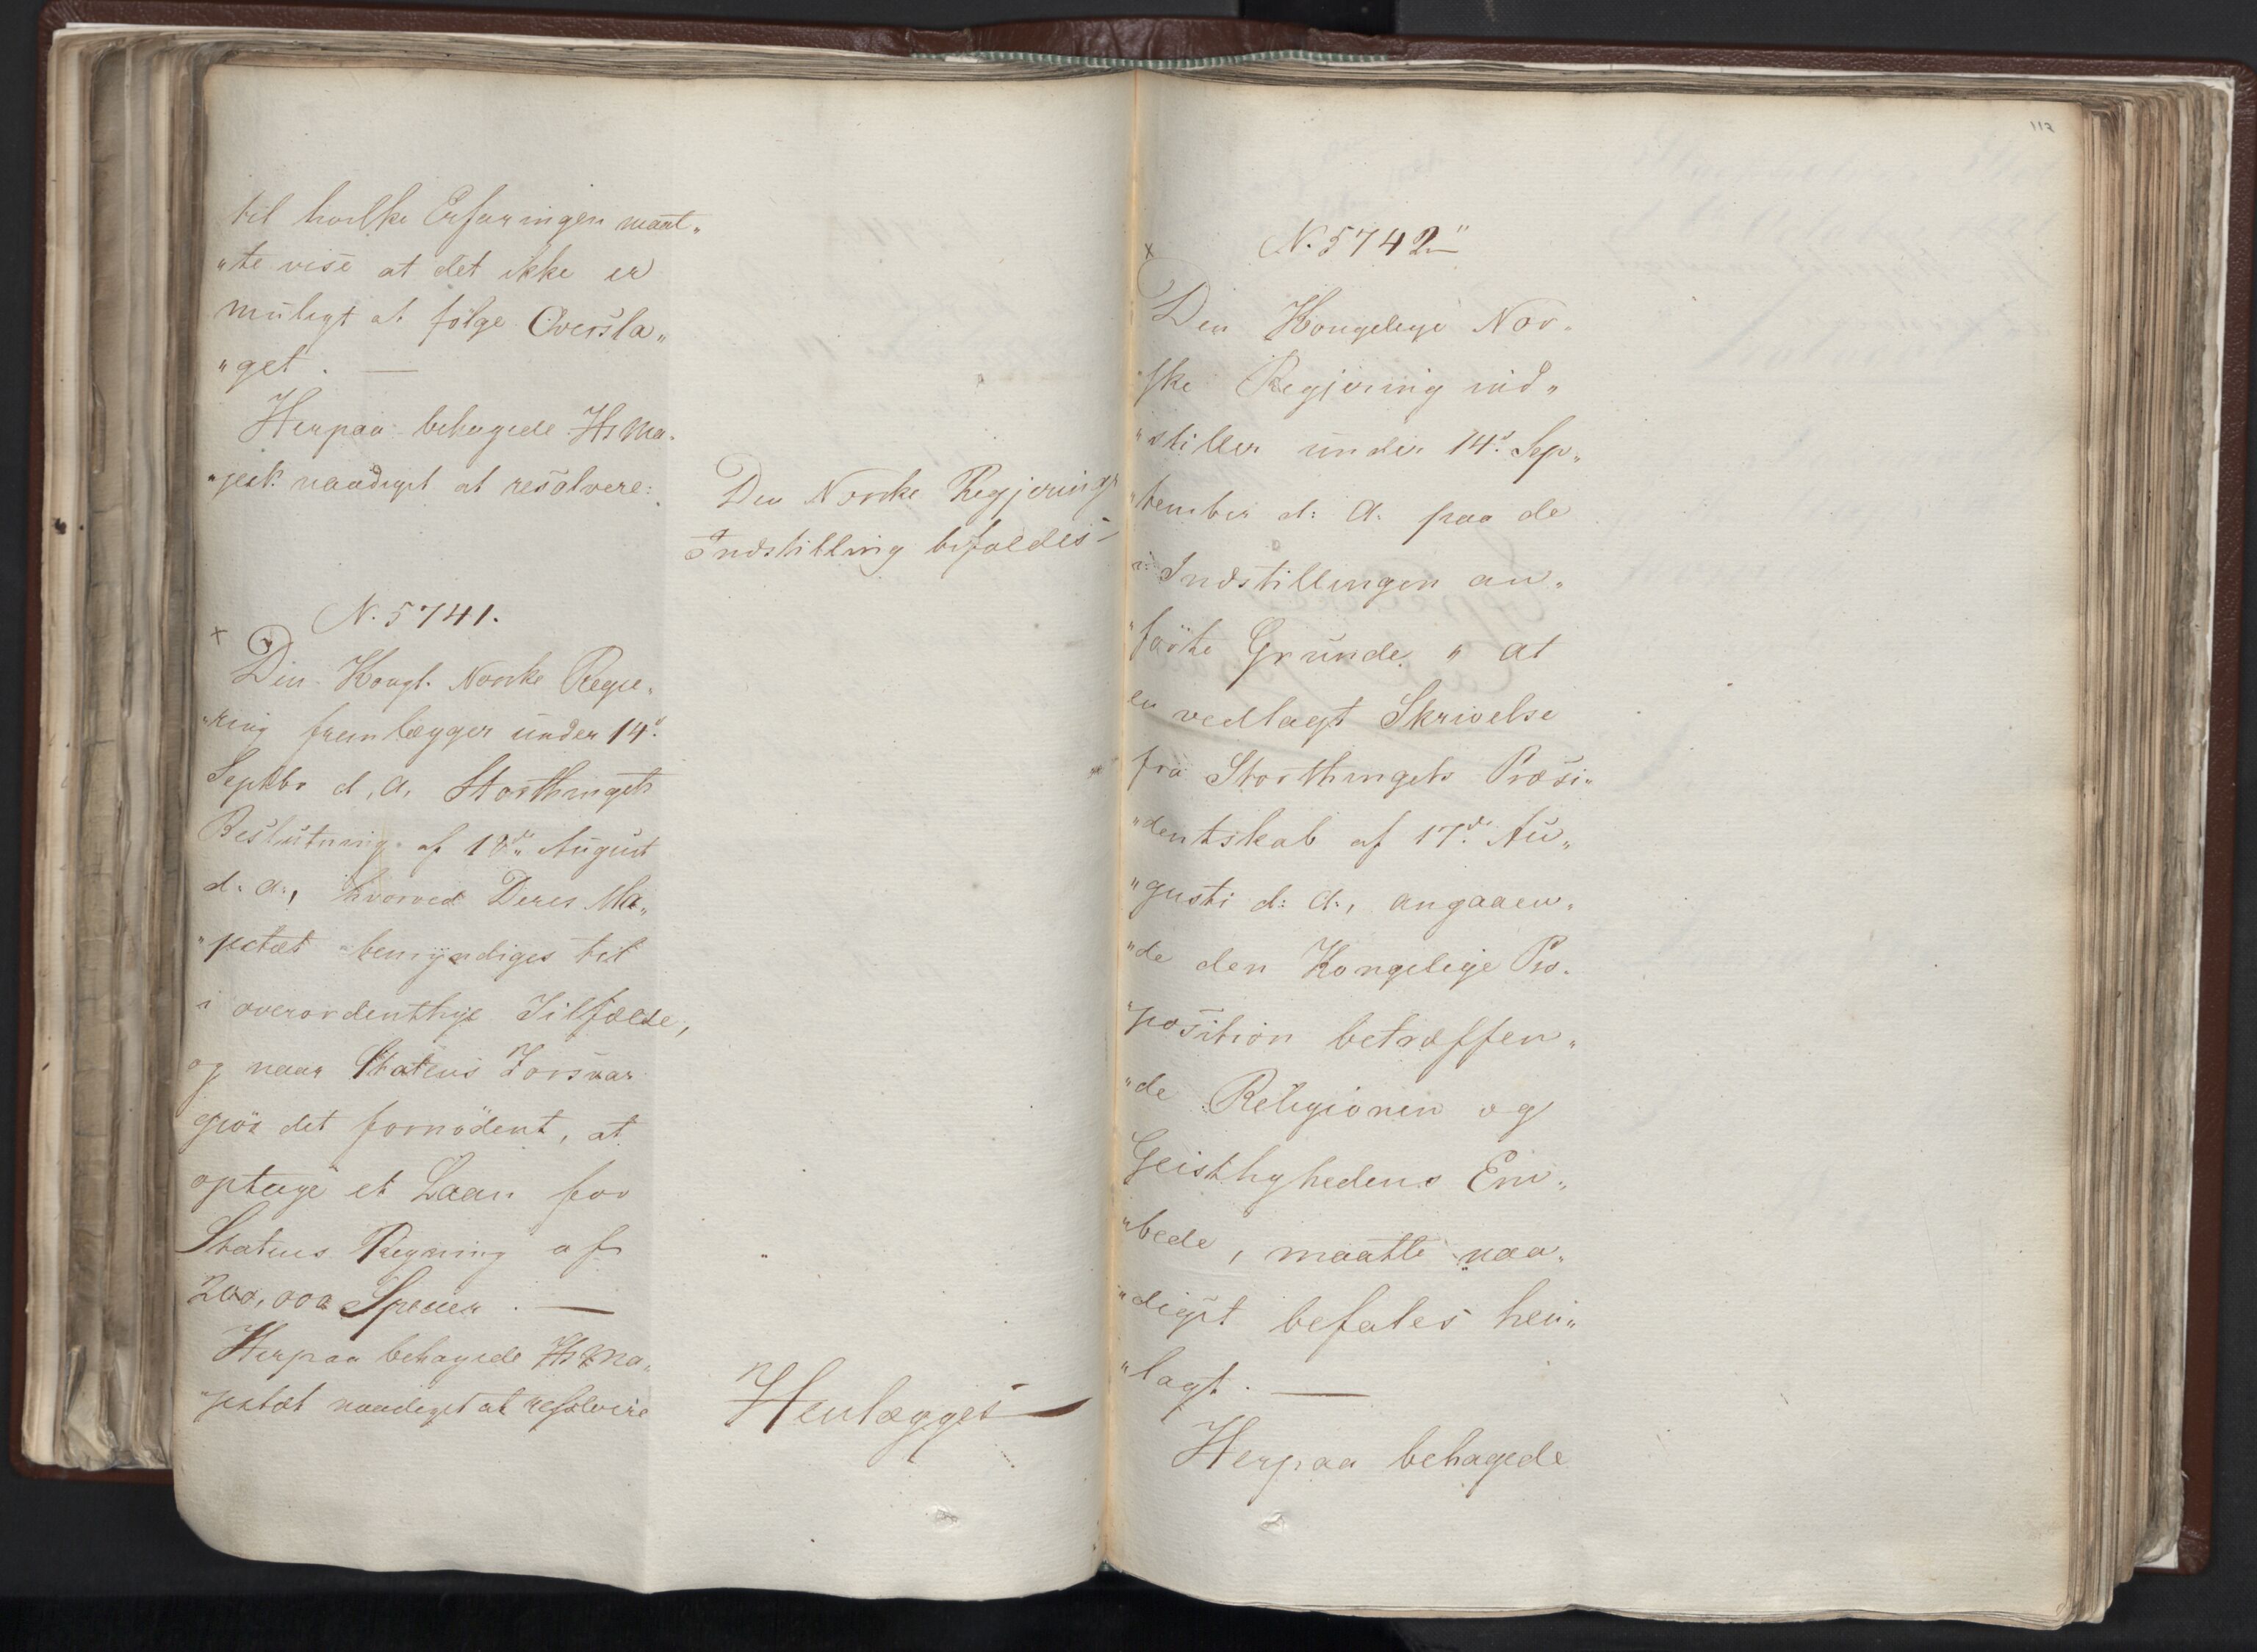 til hvilke Erfaringen maat„
„te vise at det ikke er
muligt at følge Oversla„
„get. —
Herpaa behagede Hs Ma„
„jest. naadigst at resolvere:
Den Norske Regjerings
Indstilling bifaldes
N. 5741.
Den Kongl. Norske Regje„
„ring fremlægger under 14d.
Septbr d. A. Storthingets
Beslutning af 18de August
d. A., hvorved Deres Ma„
„jestæt bemyndiges til
i overordentlige Tilfælde,
og naar Statens Forsvar
gjör det fornödent, at
optage et Laan for
Statens Regning af
200,000 Specier. —
Herpaa behagede Hs Ma„
„jestæt naadigst at resolvere
Henlægges
117
N. 5742
Den Kongelige Nor„
„ske Regjering ind„
„stiller under 14d. Sep„
„tember d: A. paa de
i Indstillingen an„
„förte Grunde „ at
en vedlagt Skrivelse
fra Storthingets Præsi„
„dentskab af 17d. Au„
„gusti d: A., angaaen„
„de den Kongelige Pro„
„position betræffen„
„de Religionen og
Geistlighedens Em„
„bede, maatte naa„
„digst befales hen„
„lagt. —
Herpaa behagede